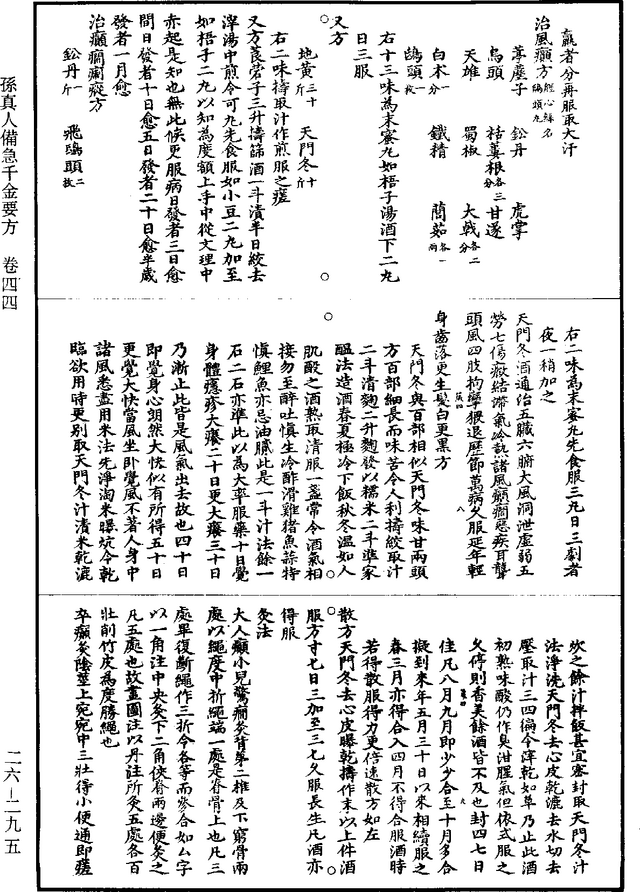 羸者分再服取大汗
治風癲方 經心錄名鴟頭丸
葶藶子 鈆丹 虎掌
烏頭 栝蔞根各三分 甘遂
天雄 蜀椒 大戟各二分
白朮一分 鐵精 䕡茹各一兩
鴟頭一枚
右十三味為末蜜丸如梧子湯酒下二丸
日三服
又方
地黃三十斤 天門冬十斤
右二味擣取汁作煎服之瘥
又方莨菪子三升擣篩酒一斗漬半日絞去
滓湯中煎令可丸先食服如小豆二丸加至
如梧子二丸以知為度額上手中從文理中
赤起是知也無此候更服病日發者三日愈
間日發者十日愈五日發者二十日愈半歲
發者一月愈
治癲癇瘈瘲方
鈆丹一斤 飛鴟頭二枚
右二味為末蜜丸先食服三丸日三劇者
夜一稍加之
天門冬酒通治五臟六腑大風洞泄虛弱五
勞七傷癥結滯氣冷熱諸風癲癇惡疾耳聾
頭風四肢拘攣猥退歷節萬病久服延年輕
身齒落更生髮白更黑方
天門冬與百部相似天門冬味甘兩頭
方百部細長而味苦令人利擣絞取汁
二斗漬麴二升麴發以糯米二斗準家
醞法造酒春夏極冷下飯秋冬溫如人
肌酘之酒熟取清服一盞常令酒氣相
接勿至醉吐慎生冷酢滑雞猪魚蒜特
慎鯉魚亦忌油膩此是一斗汁法餘一
石二石亦準此以為大率服藥十日覺
身體癮疹大癢二十日更大癢三十日
乃漸止此皆是風氣出去故也四十日
即覺身心朗然大快似有所得五十日
更覺大快當風坐卧覺風不著人身中
諸風悉盡用米法先淨淘米曝炕令乾
臨欲用時更別取天門冬汁漬米乾漉
炊之餘汁拌飯甚宜密封取天門冬汁
法淨洗天門冬去心皮乾漉去水切去
壓取汁三四徧令滓乾如草乃止此酒
初熟味酸仍作臭泔腥氣但依式服之
久停則香美餘酒皆不及也封四七日
佳凡八月九月即少少合至十月多合
擬到來年五月三十日以來相續服之
春三月亦得合入四月不得合服酒時
若得散服得力更倍速散方如左
散方天門冬去心皮曝乾擣作末以上件酒
服方寸匕日三加至三匕久服長生凡酒亦
得服
灸法
大人癲小兒驚癇灸背第二椎及下窮骨兩
處以繩度中折繩端一處是脊骨上也凡三
處畢復斷繩作三折令各等而參合如厶字
以一角注中央灸下二角俠脊兩邊便灸之
凡五處也故畫圖法以丹注所灸五處各百
壯削竹皮為度勝繩也
卒癲灸陰莖上宛宛中三壯得小便通即瘥
孫真人備急千金要方 卷四四
二六-二九五